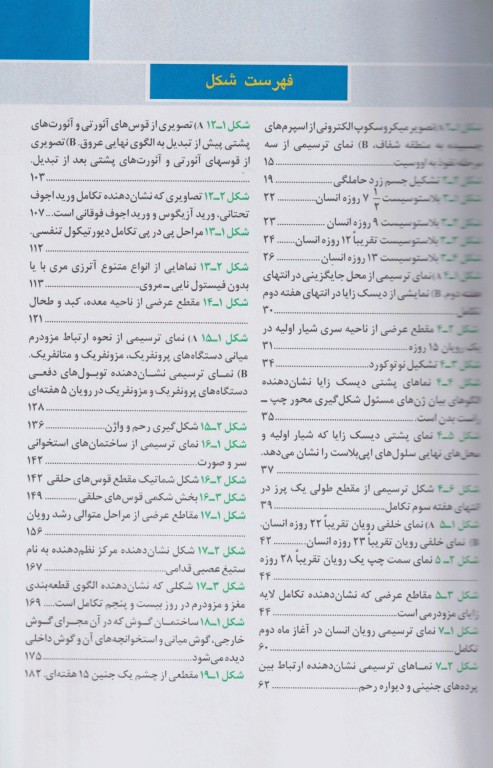 فهرست شکل
شکل ۱ــ۲ A) تصویر میکروسکوپ الکترونی از اسپرم‌های
چسبیده به منطقه شفاف، B) نمای ترسیمی از سه
مرحله نفوذ به اووسیت ۱۵
شکل ۲ــ۲ تشکیل جسم زرد حاملگی ۱۹
شکل ۱ــ۳ بلاستوسیست ۴ ۱/۲ روزه انسان ۲۲
شکل ۲ــ۳ بلاستوسیست ۹ روزه انسان ۲۳
شکل ۳ــ۳ بلاستوسیست تقریباً ۱۲ روزه انسان ۲۴
شکل ۴ــ۳ بلاستوسیست ۱۳ روزه انسان ۲۶
شکل ۱ــ۴ A) نمای ترسیمی از محل جایگزینی در انتهای
هفته دوم. B) نمایشی از دیسک زایا در انتهای هفته دوم
تکامل ۳۰
شکل ۲ــ۴ مقطع عرضی از ناحیه سری شیار اولیه در
یک رویان ۱۵ روزه ۳۱
شکل ۳ــ۴ تشکیل نوتوکورد ۳۴
شکل ۴ــ۴ نماهای پشتی دیسک زایا نشان‌دهنده
الگوهای بیان ژن‌های مسئول شکل‌گیری محور چپ ــ
راست بدن است. ۳۵
شکل ۵ــ۴ نمای پشتی دیسک زایا که شیار اولیه و
محل‌های نهایی سلول‌های اپی‌بلاست را نشان می‌دهد.
۳۷
شکل ۶ــ۴ شکل ترسیمی از مقطع طولی یک پرز در
انتهای هفته سوم تکامل ۳۹
شکل ۱ــ۵ A) نمای خلفی رویان تقریباً ۲۲ روزه انسان.
B) نمای خلفی رویان تقریباً ۲۳ روزه انسان. ۴۲
شکل ۲ــ۵ نمای سمت چپ یک رویان تقریباً ۲۸ روزه
۴۴
شکل ۳ــ۵ مقاطع عرضی که نشان‌دهنده تکامل لایه
زایای مزودرمی است ۴۴
شکل ۱ــ۷ نمای ترسیمی رویان انسان در آغاز ماه دوم
تکامل ۶۰
شکل ۲ــ۷ نماهای ترسیمی نشان‌دهنده ارتباط بین
پرده‌های جنینی و دیواره رحم ۶۲
شکل ۱ــ۱۲ A) تصویری از قوس‌های آئورتی و آئورت‌های
پشتی پیش از تبدیل به الگوی نهایی عروق. B) تصویری
از قوسهای آئورتی و آئورت‌های پشتی بعد از تبدیل.
۱۰۳
شکل ۲ــ۱۲ تصاویری که نشان‌دهنده تکامل ورید اجوف
تحتانی، ورید آزیگوس و ورید اجوف فوقانی است... ۱۰۷
شکل ۱ــ۱۳ مراحل پی در پی تکامل دیورتیکول تنفسی.
۱۱۲
شکل ۲ــ۱۳ نماهایی از انواع متنوع آترزی مری با یا
بدون فیستول نایی ــ مروی ۱۱۳
شکل ۱ــ۱۴ مقطع عرضی از ناحیه معده، کبد و طحال
۱۲۱
شکل ۱ــ۱۵ A) نمای ترسیمی از نحوه ارتباط مزودرم
میانی دستگاه‌های پرونفریک، مزونفریک و متانفریک.
B) نمای ترسیمی نشان‌دهنده توبول‌های دفعی
دستگاه‌های پرونفریک و مزونفریک در رویان ۵ هفته‌ای
۱۲۸
شکل ۲ــ۱۵ شکل‌گیری رحم و واژن ۱۳۶
شکل ۱ــ۱۶ نمای ترسیمی از ساختمان‌های استخوانی
سر و صورت ۱۴۲
شکل ۲ــ۱۶ شکل شماتیک مقطع قوس‌های حلقی ۱۴۲
شکل ۳ــ۱۶ بخش شکمی قوس‌های حلقی ۱۴۹
شکل ۱ــ۱۷ مقاطع عرضی از مراحل متوالی رشد رویان
۱۵۶
شکل ۲ــ۱۷ شکل نشان‌دهنده مرکز نظم‌دهنده به نام
ستیغ عصبی قدامی ۱۶۷
شکل ۳ــ۱۷ شکلی که نشان‌دهنده الگوی قطعه‌بندی
مغز و مزودرم در روز بیست و پنجم تکامل است.... ۱۶۹
شکل ۱ــ۱۸ ساختمان گوش که در آن مجرای گوش
خارجی، گوش میانی و استخوانچه‌های آن و گوش داخلی
دیده می‌شود ۱۷۵
شکل ۱ــ۱۹ مقطعی از چشم یک جنین ۱۵ هفته‌ای. ۱۸۲